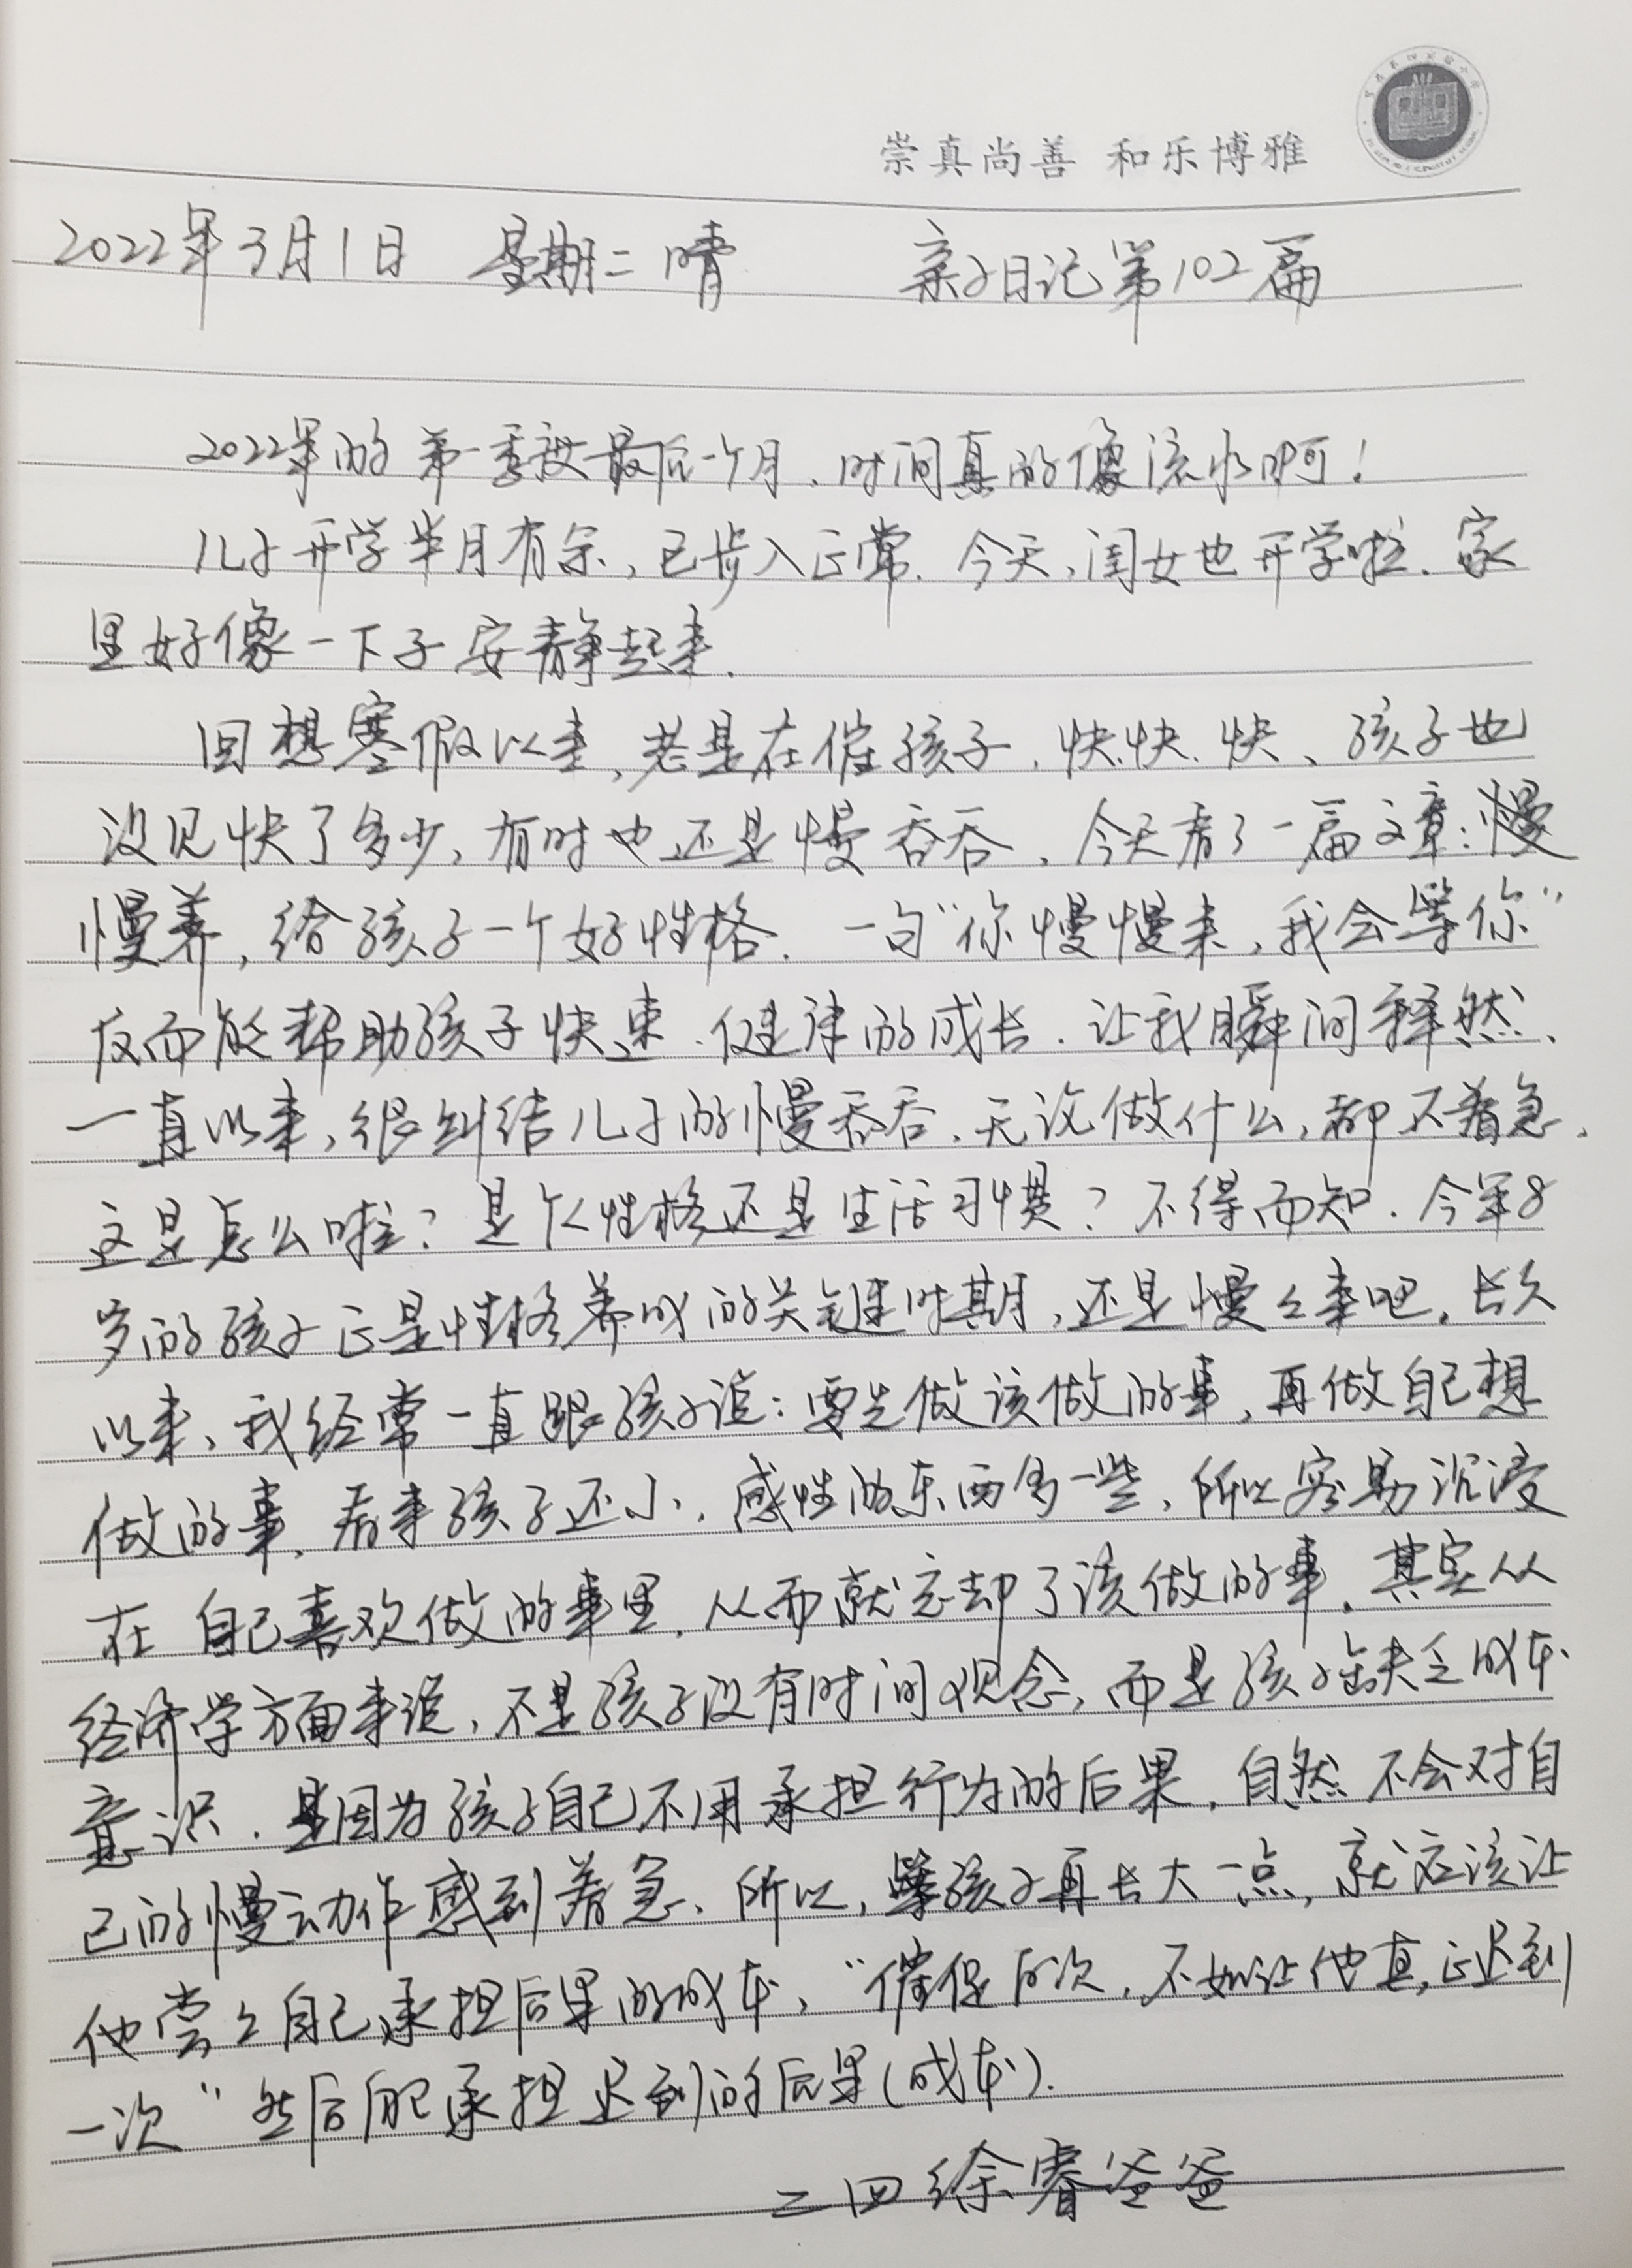 崇真尚善 和乐博雅
2022年3月1日 星期二 晴 亲子日记第102篇
2022年的第一季度最后一个月,时间真的像流水啊!
儿子开学半月有余,已步入正常.今天,闺女也开学啦.家
里好像一下子安静起来.
回想寒假以来,老是在催孩子,快.快.快、孩子也
没见快了多少,有时也还是慢吞吞,今天看了一篇文章:慢
慢养,给孩子一个好性格.一句“你慢慢来,我会等你”
反而能帮助孩子快速.健康的成长.让我瞬间释然、
一直以来,很纠结儿子的慢吞吞.无论做什么,都不着急、
这是怎么啦?是个性格还是生活习惯?不得而知.今年8
岁的孩子正是性格养成的关键时期,还是慢々来吧。长久
以来,我经常一直跟孩子说:要先做该做的事,再做自己想
做的事,看来孩子还小,感性的东西多一些,所以容易沉浸
在自己喜欢做的事里,从而就忘却了该做的事。其实从
经济学方面来说,不是孩子没有时间观念,而是孩子缺乏成本
意识.是因为孩子自己不用承担行为的后果,自然不会对自
己的慢动作感到着急、所以,等孩子再长大一点,就应该让
他尝々自己承担后果的成本,“催促百次,不如让他真正迟到
一次”然后自己承担迟到的后果(成本).
二四徐睿爸爸